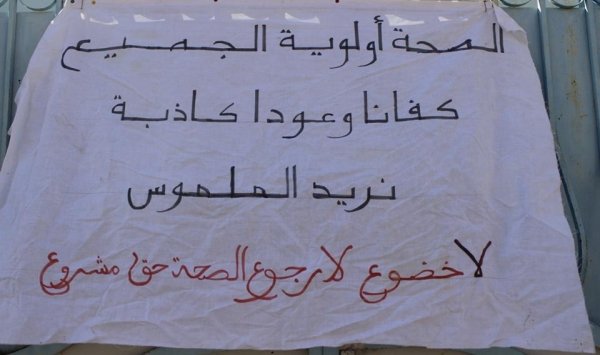 الصحة أولوية الجميع
كفانا وعودا كاذبة
نريد الملموس
لا خضوع لا رجوع الصحة حق مشروع